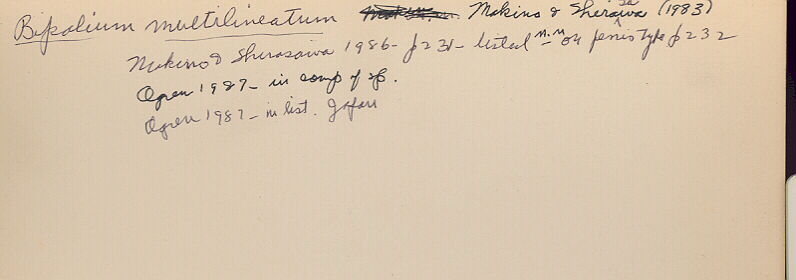 Bipalium multilineatum Makino & Sherasawa (1983)
Makino & Sherasawa 1986 - p 231 - listed n.n. on penis type p 232
Ogren 1987 - in comp of sp.
Ogren 1987 - in list. Japan